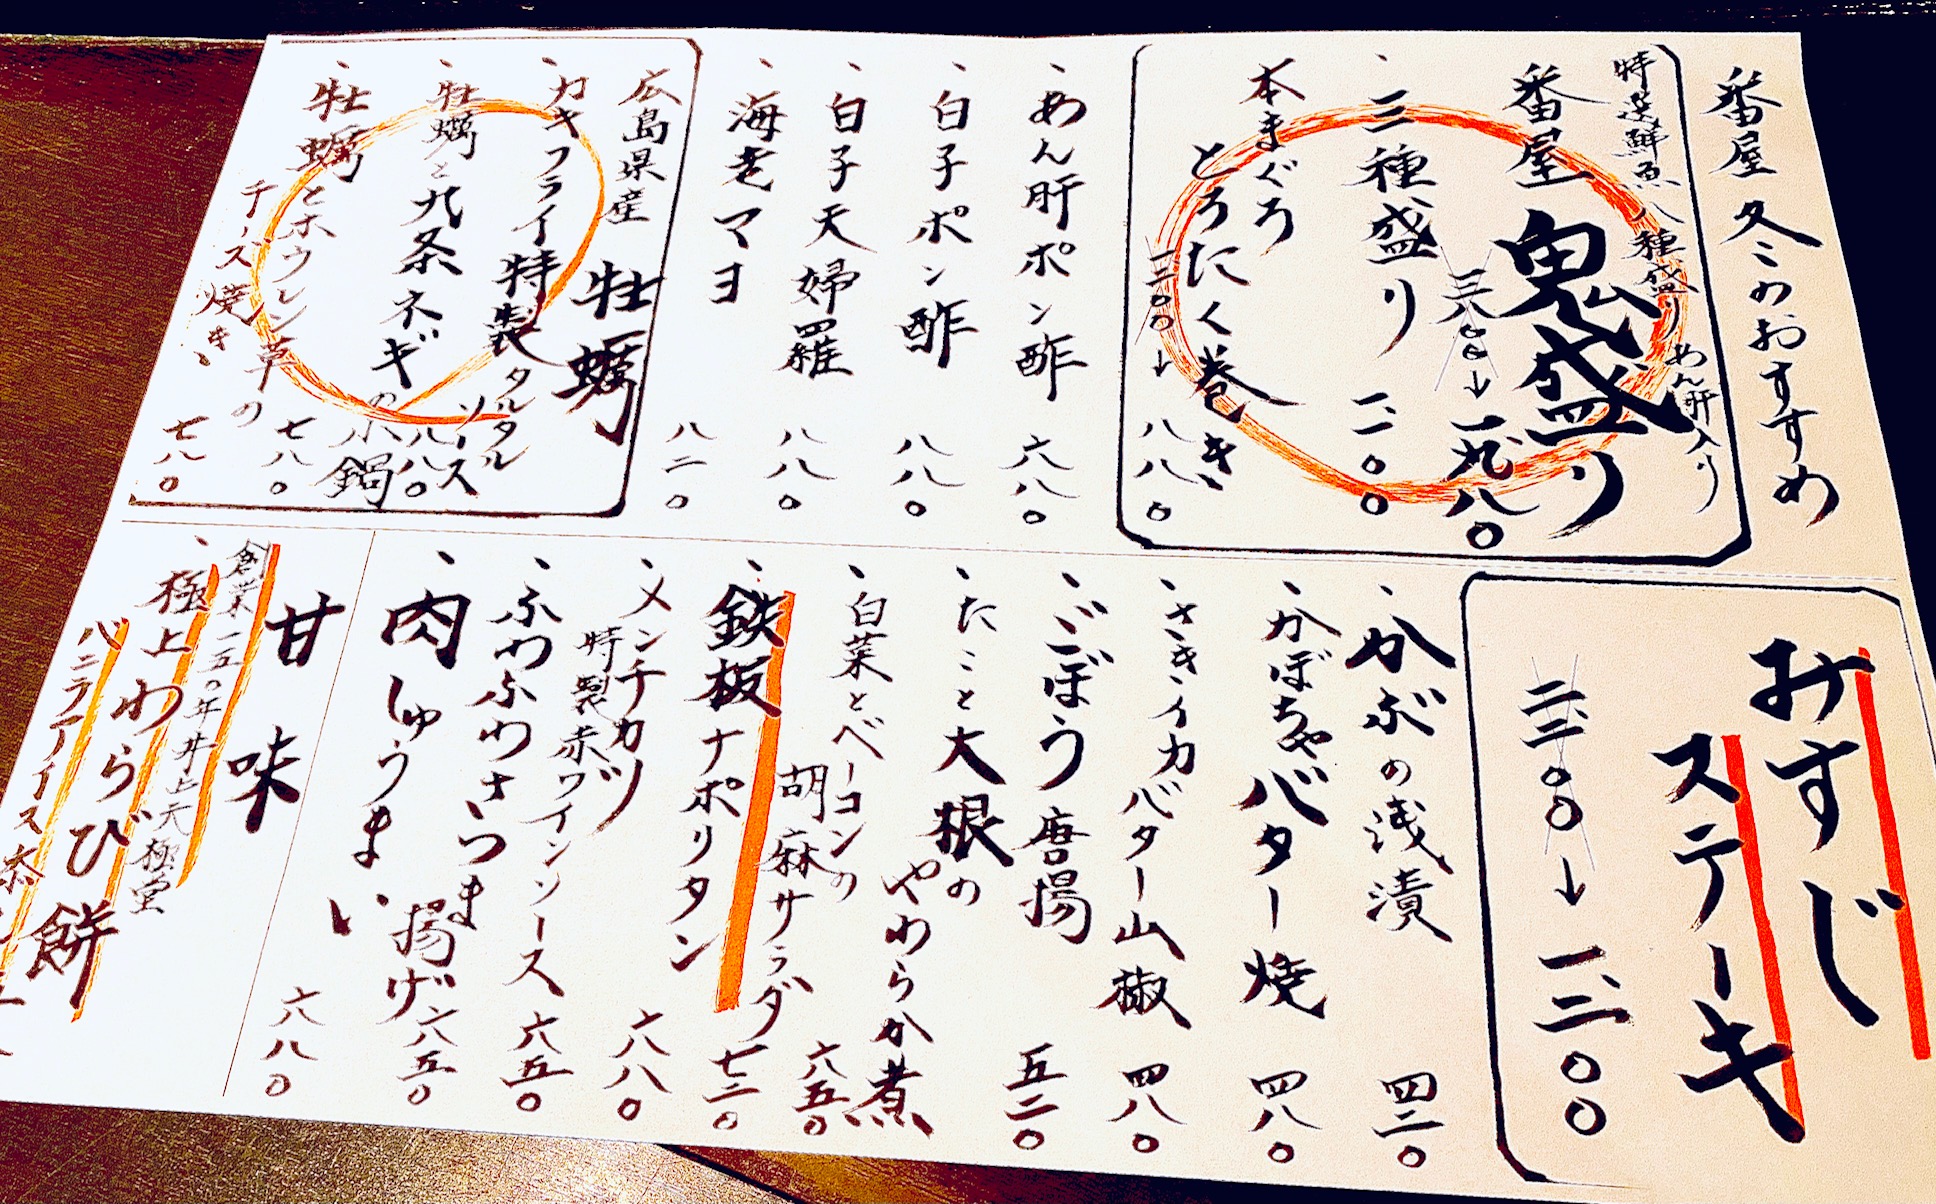 番屋 冬のおすすめ
特選鮮魚八種盛り あん肝入り
番屋 鬼盛り
三八〇〇→一九八〇
、三種盛り 一二〇
本まぐろ
とろたく巻き、
一二〇〇→八八〇
、あん肝ポン酢 六八〇
、白子ポン酢 八八〇
、白子天婦羅 八八〇
、海老マヨ 八二〇
広島県産 牡蠣
、カキフライ特製タルタルソース 八八〇
、牡蠣と九条ネギの小鍋 七八〇
、牡蠣とホウレン草の
チーズ焼き、 七八〇
おすじ
ステーキ
二二〇〇→一二〇〇
、かぶの浅漬 四二〇
、かぼちゃバター焼 四八〇
、さきイカバター山椒 四八〇
、ごぼう唐揚 五二〇
、たこと大根の
やわらか煮
、白菜とベーコンの
胡麻サラダ 六五〇
、鉄板ナポリタン 七二〇
、メンチカツ
特製赤ワインソース 六八〇
、ふわふわさつま揚げ 六五〇
、肉しゅうまい 六五〇
甘味 六八〇
創業一五〇年井上天極堂
、極上わらび餅
バニラアイス添え